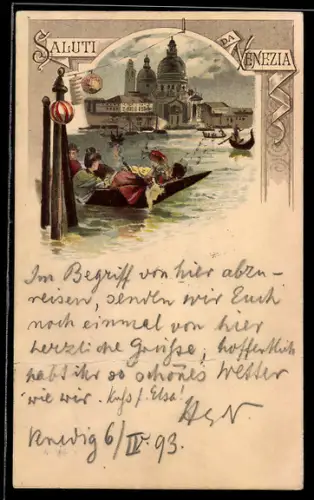 SALUTI DA VENEZIA
Im Begriff von hier abzu-
reisen, senden wir Euch
noch einmal von hier
herzliche Grüße, hoffentlich
habt ihr so schönes Wetter
wie wir. Kuss f. Elsa!
Venedig 6/IV. 93.